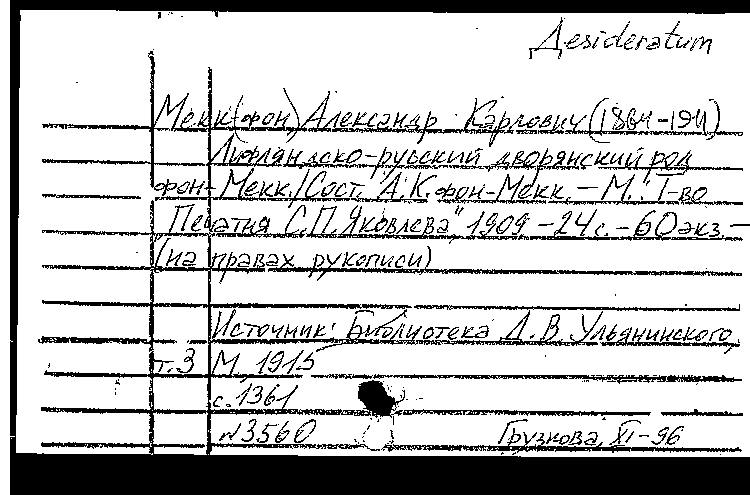 Desideratum
Мекк(фон) Александр Карлович (1864-1911)
Лифляндско-русский дворянский род
фон-Мекк./Сост. А.К.фон-Мекк.-М.: Т-во
"Печатня С.П.Яковлева", 1909 - 24 с. - 60 экз. -
(на правах рукописи)
Источник: Библиотека Д.В. Ульянинского,
т.3 М, 1915
с.1361
№3560 Грузкова, XI-96